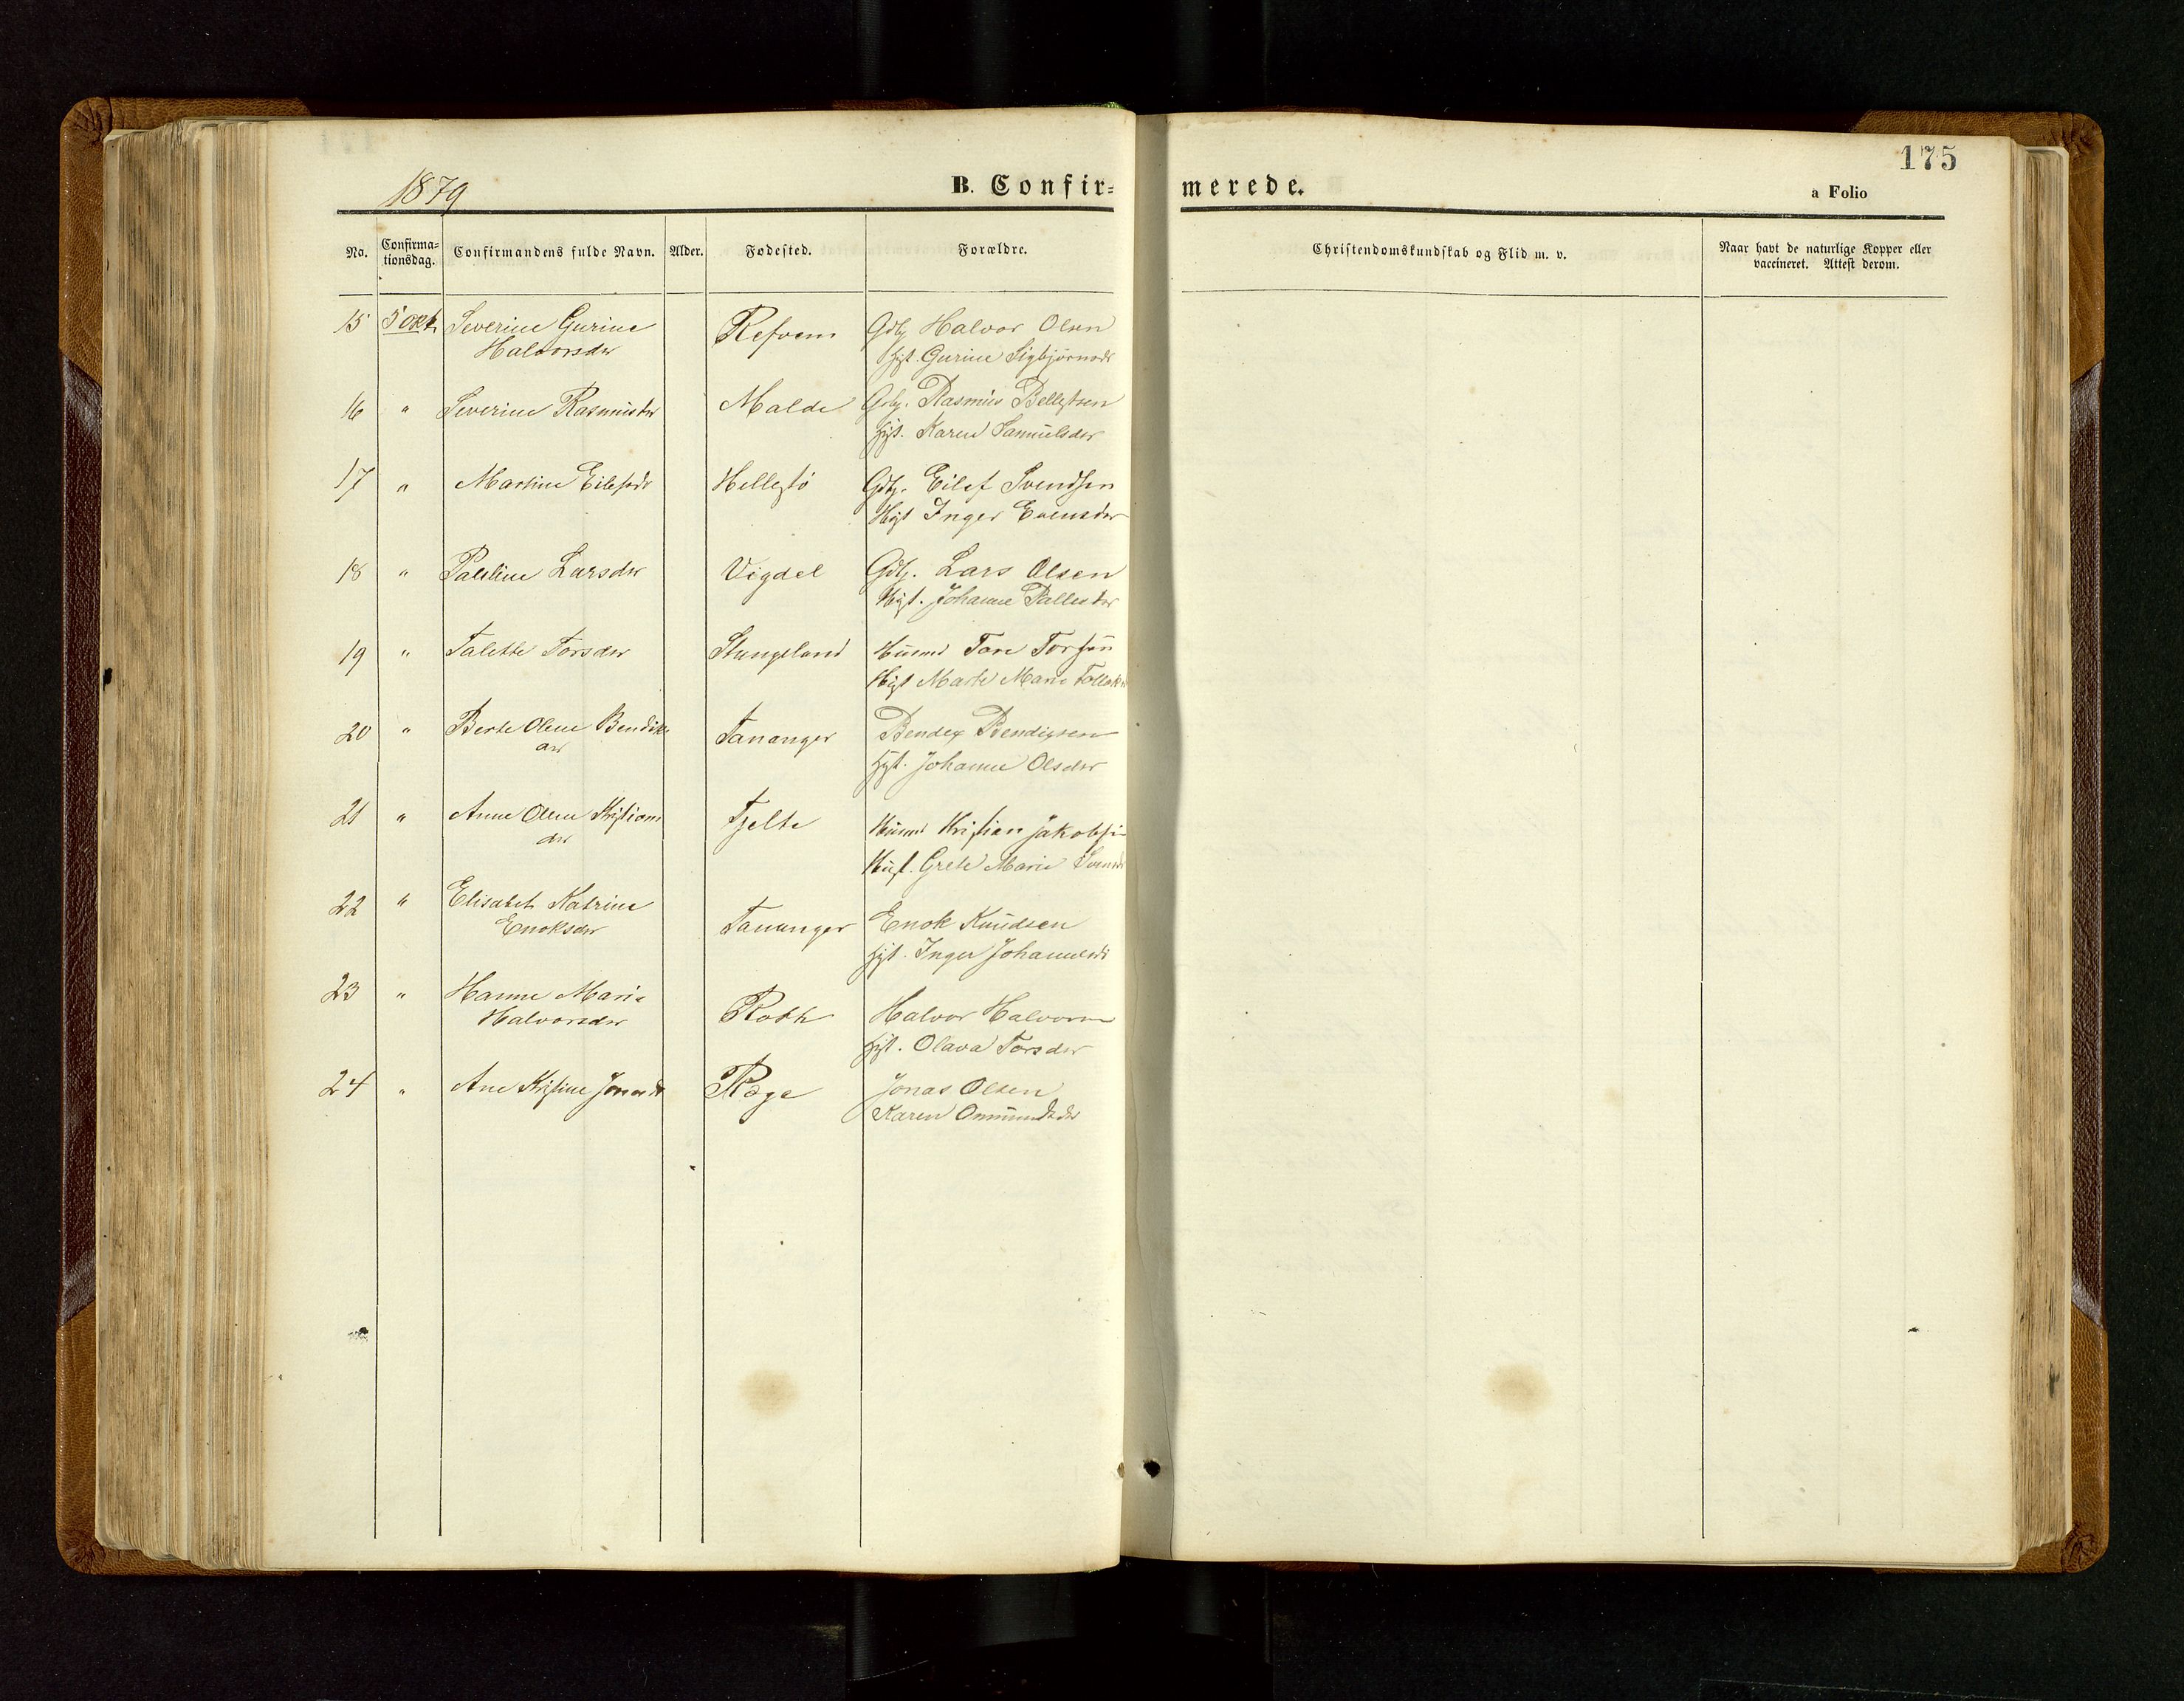 175
1879
B. Confir-
merede.
a Folio
No.
Confirma-
tionsdag.
Confirmandens fulde Navn.
Alder.
Fødested.
Forældre.
Christendomskundskab og Flid m. v.
Naar havt de naturlige Kopper eller
vaccineret. Attest derom.
15 5 Okt. Severine Gurine Refvem Gdbg Halvor Olsen
Halvorsdtr Hgt. Gurine Sigbjørnsdr
16 " Severine Rasmusdtr Malde Gdbg. Rasmus Bellestsen
Hgt. Karen Samuelsdtr
17 " Martine Eilefsdr Hellestø Gdbg. Eilef Svendsen
Hgt Inger Evensdtr
18 " Palline Larsdtr Vigdel Gdbg. Lars Olsen
Hgt. Johanne Pallesdtr
19 " Talette Torsdtr Stangeland Husmd Tore Torsen
Hgt Marte Marie
20 " Berte Olene Bendiks Tananger Bendex Bendixsen
dtr Hgt. Johanne Olsdtr
21 " Anne Olene Kristians Tjelte Husmd Kristian Jakobsen
dtr Hust. Grete Marie
22 " Elisabet Katrine Tananger Enok Knudsen
Enoksdtr Hgt. Inger Johannesdr
23 " Hanne Marie Roth Halvor Halvorsen
Halvorsdtr Hgt. Olava Torsdtr
24 " Ane Kristine Jonasdtr Ræge Jonas Olsen
Karen Ommundsdtr